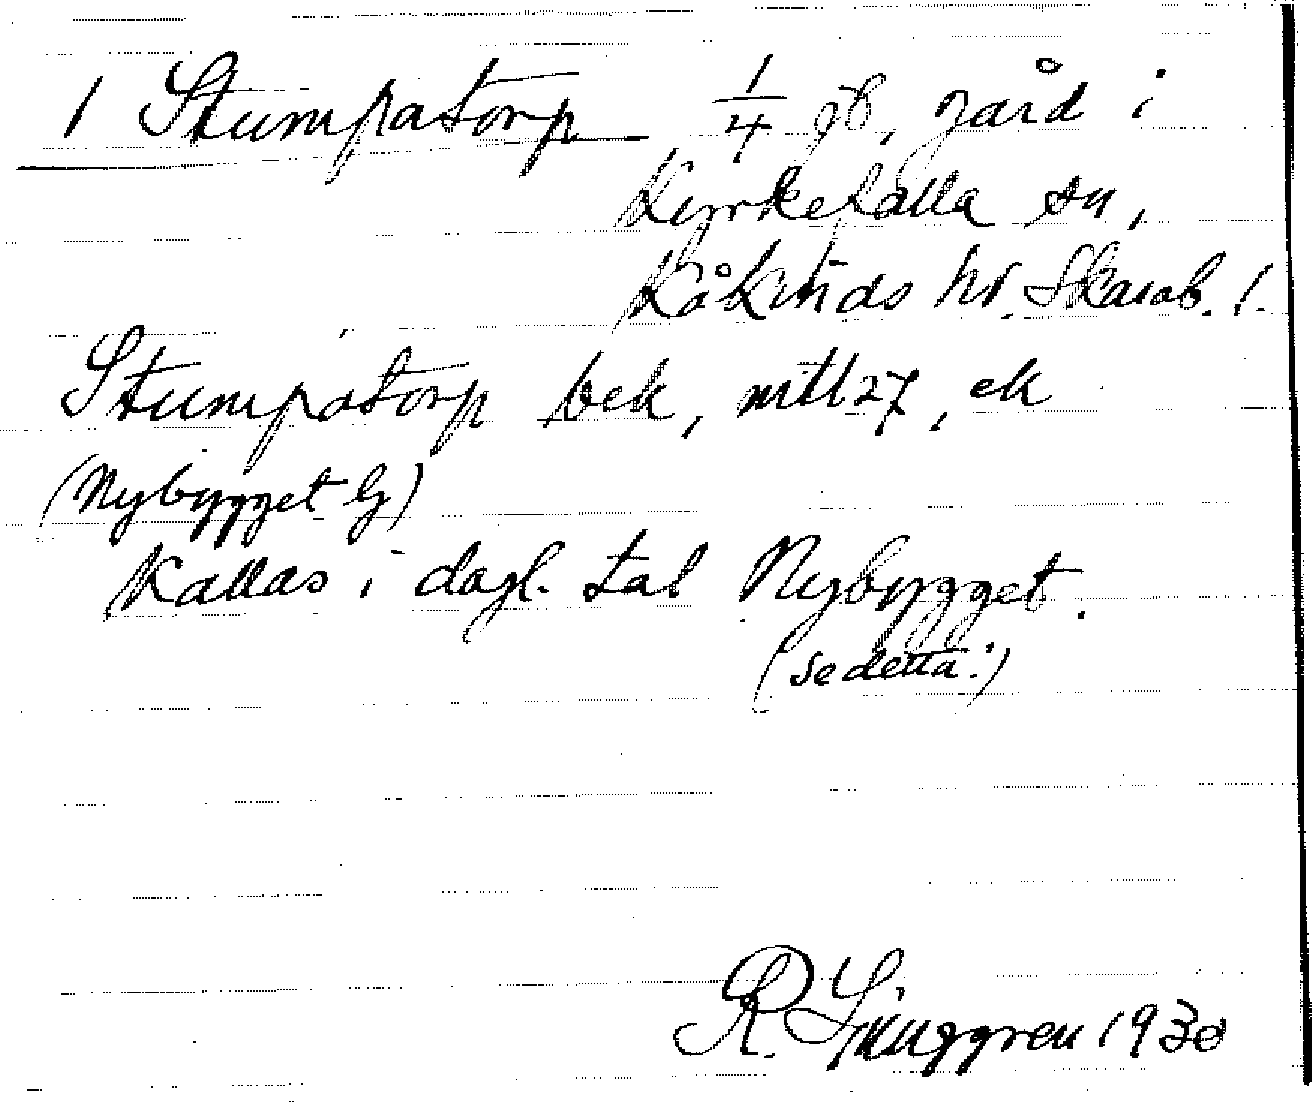 1 Stumpatorp 1/4 jb, gård i
Kyrkefalla sn,
Kåkinds hd. Skarab. l.
Stumpatorp bek, mtl 27, ek
(Nybygget Lj)
Kallas i dagl. tal Nybygget.
(se detta!)
R. Ljunggren 1930